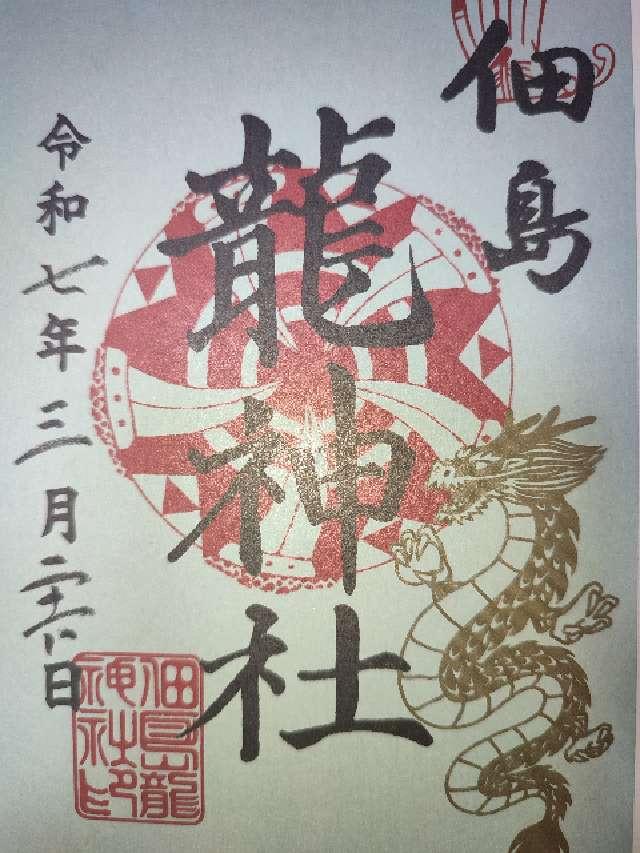 佃島
龍神社
令和七年三月二十六日
佃島龍
神社印